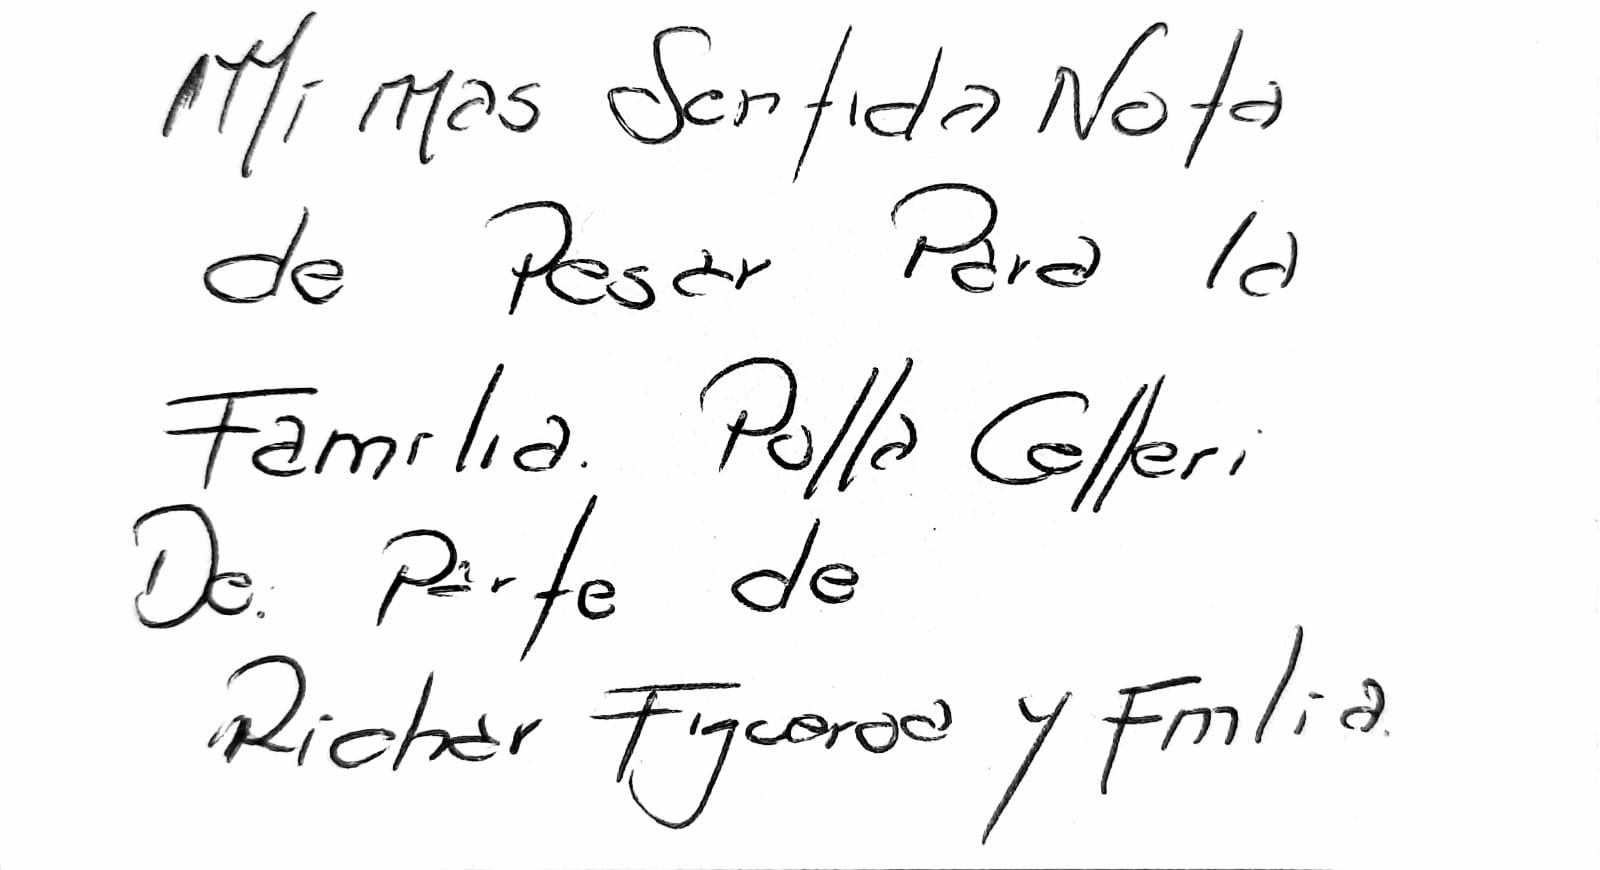 Mi mas Sentida Nota
de Pesar Para la
Familia. Polla Celleri
De. Parte de
Richar Figueroa y Fmlia.